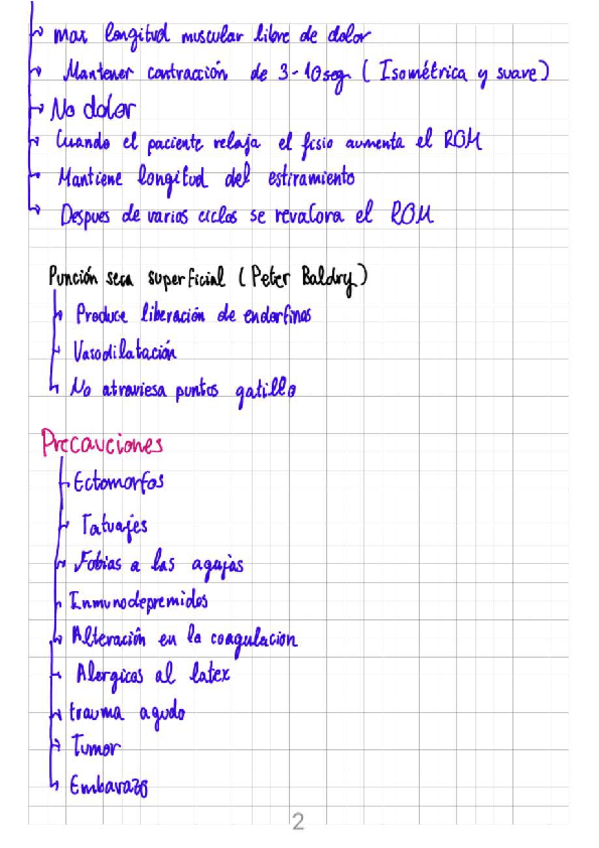 max longitud muscular libre de dolor
Mantener contracción de 3-10seg (Isométrica y suave)
No dolor
Cuando el paciente relaja el fisio aumenta el ROM
Mantiene longitud del estiramiento
Despues de varios ciclos se revalora el ROM
Punción seca superficial (Peter Baldry)
Produce liberación de endorfinas
Vasodilatación
No atraviesa puntos gatillo
Precauciones
Ectomorfos
Tatuajes
Fobias a las agujas
Inmunodepremidos
Alteración en la coagulacion
Alergicos al latex
trauma agudo
Tumor
Embarazo
2